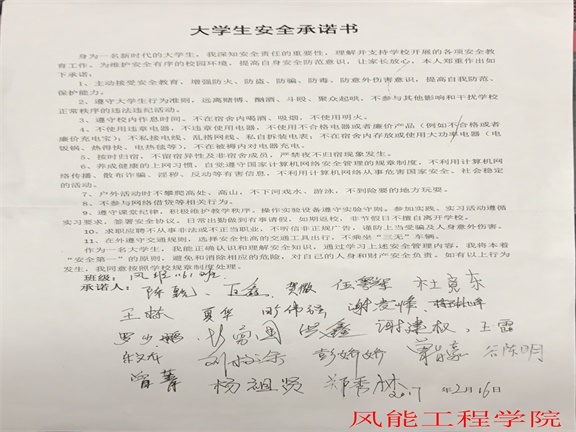 大学生安全承诺书
身为一名新时代的大学生，我深知安全责任的重要性，理解并支持学校开展的各项安全教
育工作。为维护安全有序的校园环境，提高自身安全防范意识，让家长放心，本人郑重作出如
下承诺：
1、主动接受安全教育，增强防火、防盗、防骗、防毒、防意外伤害意识，提高自我防范、
保护能力。
2、遵守大学生行为准则，远离赌博、酗酒、斗殴、聚众起哄，不参与其他影响和干扰学校
正常秩序的违法违纪活动。
3、遵守校内作息时间，不在宿舍内喝酒、吸烟，不使用明火。
4、不使用违章电器，不违章使用电器，不使用不合格电器或者廉价产品（例如不合格或者
廉价充电宝）；不私接电线、乱搭网线、私自拆装电表；不在宿舍内存放或使用大功率电器（电
饭锅、热得快、电热毯等），不在被褥内对电器充电。
5、按时归宿，不留宿异性及非宿舍成员，严禁夜不归宿现象发生。
6、养成健康的上网习惯，自觉遵守国家计算机网络安全管理的规章制度，不利用计算机网
络传播、散布诈骗、淫秽、反动等有害信息，不利用计算机网络从事危害国家安全、社会稳定
的活动。
7、户外活动时不攀爬高处、高山，不下河戏水、游泳，不到险要的地方玩耍。
8、不参与网络借贷等相关行为。
9、遵守课堂纪律，积极维护教学秩序，操作实验设备遵守实验守则。参加实践、实习活动遵循
实习要求，签署安全协议。日常出勤做到有事请假，如期返校，非节假日不擅自离开学校。
10、求职应聘不从事非法或不正当职业，不听信非正规广告，谨防上当受骗及人身意外伤害。
11、在外遵守交通规则，选择安全性高的交通工具出行，不乘坐“三无”车辆。
作为一名大学生，我能正确认识和理解安全知识，通过学习上述安全管理内容，我将本着
“安全第一”的原则，避免和消除相应的危险，对自己的人身和财产安全负责。如有以上行为
发生，我同意按照学校规章制度处理。
班级：风能
承诺人：陈 杜竟东
王栋 夏华 谢俊峰
罗少鹏 洪鑫 谢建权 王雷
彭娇娇 谷陈明
曾菁 杨祖贤 郑秀林 2017年2月16日
风能工程学院